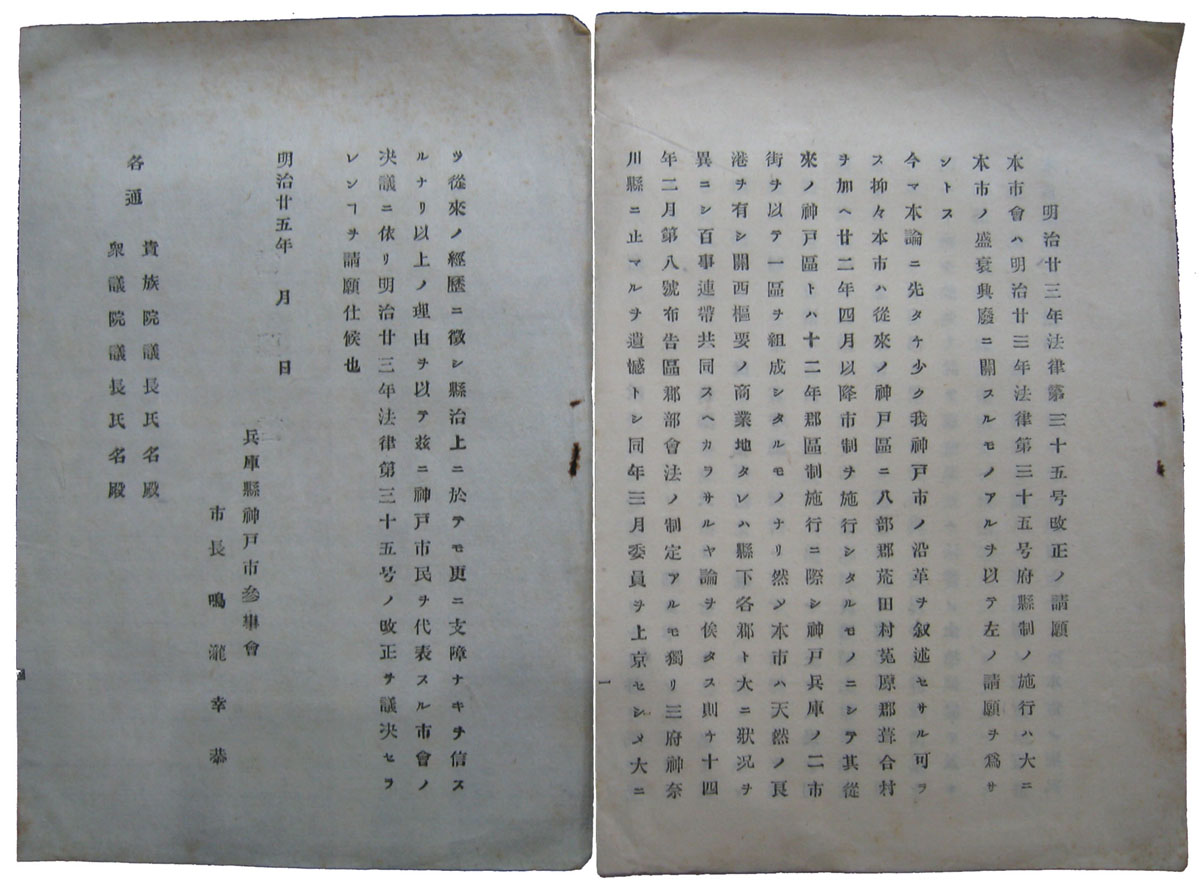 明治廿三年法律第三十五号改正ノ請願
本市會ハ明治廿三年法律第三十五号府縣制ノ施行ハ大ニ
本市ノ盛衰興廢ニ關スルモノアルヲ以テ左ノ請願ヲ爲サ
ントス
今マ本論ニ先タケ少ク我神戸市ノ沿革ヲ叙述セサル可ラ
ス抑々本市ハ從來ノ神戸區ニ八部郡荒田村莵原郡葺合村
ヲ加ヘ廿二年四月以降市制ヲ施行シタルモノニシテ其從
來ノ神戸區トハ十二年郡區制施行ニ際シ神戸兵庫ノ二市
街ヲ以テ一區ヲ組成シタルモノナリ然ソ本市ハ天然ノ良
港ヲ有シ關西樞要ノ商業地タレハ縣下各郡ト大ニ狀况ヲ
異ニシ百事連帶共同スヘカラサルヤ論ヲ俟タス則ケ十四
年二月第八號布告區郡部會法ノ制定アルモ獨リ三府神奈
川縣ニ止マルヲ遺憾トシ同年三月委員ヲ上京セシメ大ニ
一
ツ從來ノ經歷ニ徵シ縣治上ニ於テモ更ニ支障ナキヲ信ス
ルナリ以上ノ理由ヲ以テ茲ニ神戸市民ヲ代表スル市會ノ
决議ニ依リ明治廿三年法律第三十五号ノ改正ヲ議决セラ
レンヿヲ請願仕候也
明治廿五年　月　日
兵庫縣神戸市參事會
市長鳴瀧幸恭
各通
貴族院議長氏名殿
衆議院議長氏名殿